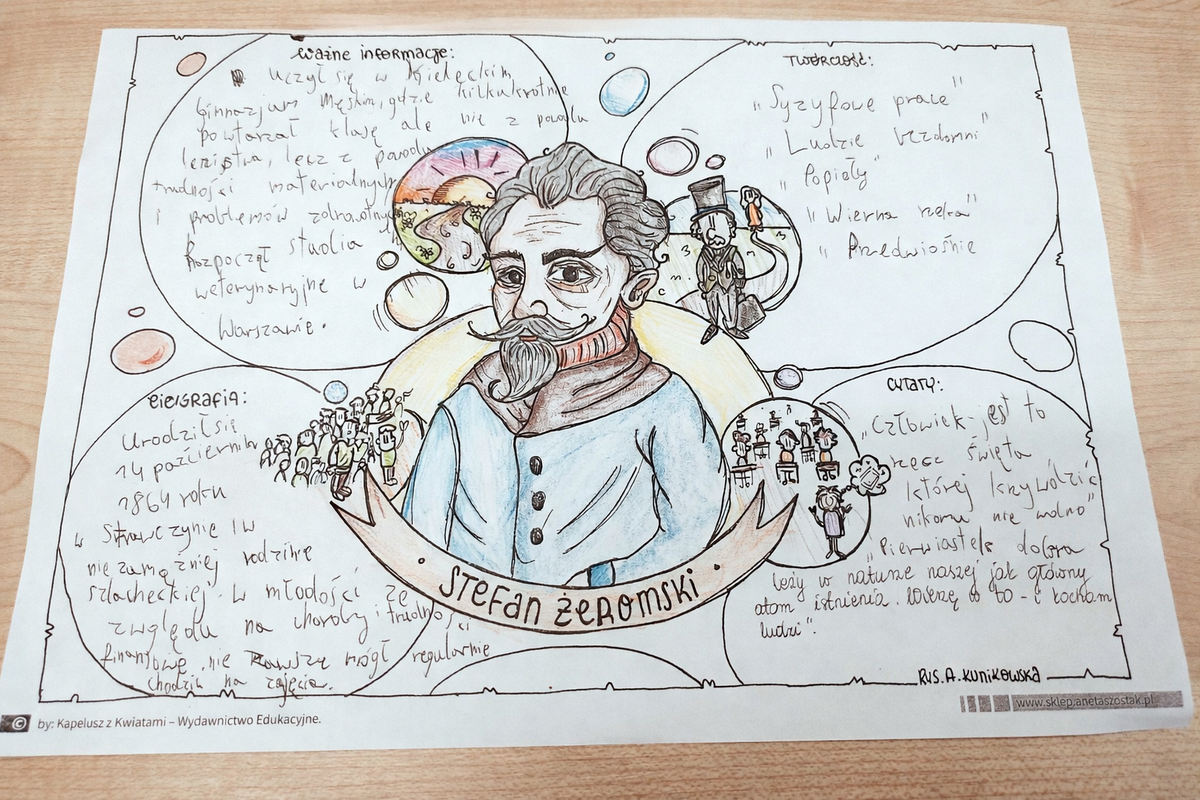 Ważne informacje:
Uczył się w Kieleckim
Gimnazjum Męskim, gdzie kilkukrotnie
powtarzał klasę ale nie z powodu
lenistwa, lecz z powodu
trudności materialnych
i problemów zdrowotnych
Rozpoczął studia
weterynaryjne w
Warszawie.
Twórczość:
„Syzyfowe prace"
„Ludzie bezdomni"
„Popioły"
„Wierna rzeka"
„Przedwiośnie
Biografia:
Urodził się
14 październik
1864 roku
w Strawczynie w
niezamożniej rodzinie
szlacheckiej. W młodości ze
względu na choroby i trudności
finansowe nie zawsze mógł regularnie
chodzić na zajęcia.
Cytaty:
„Człowiek - jest to
rzecz święta
której krzywdzić
nikomu nie wolno"
„Pierwiastek dobra
leży w naturze naszej jak główny
atom istnienia. Wierzę w to - i kocham
ludzi".
Stefan Żeromski
Rys. A. Kunikowska
© by: Kapelusz z Kwiatami – Wydawnictwo Edukacyjne.
www.sklep.anetaszostak.pl